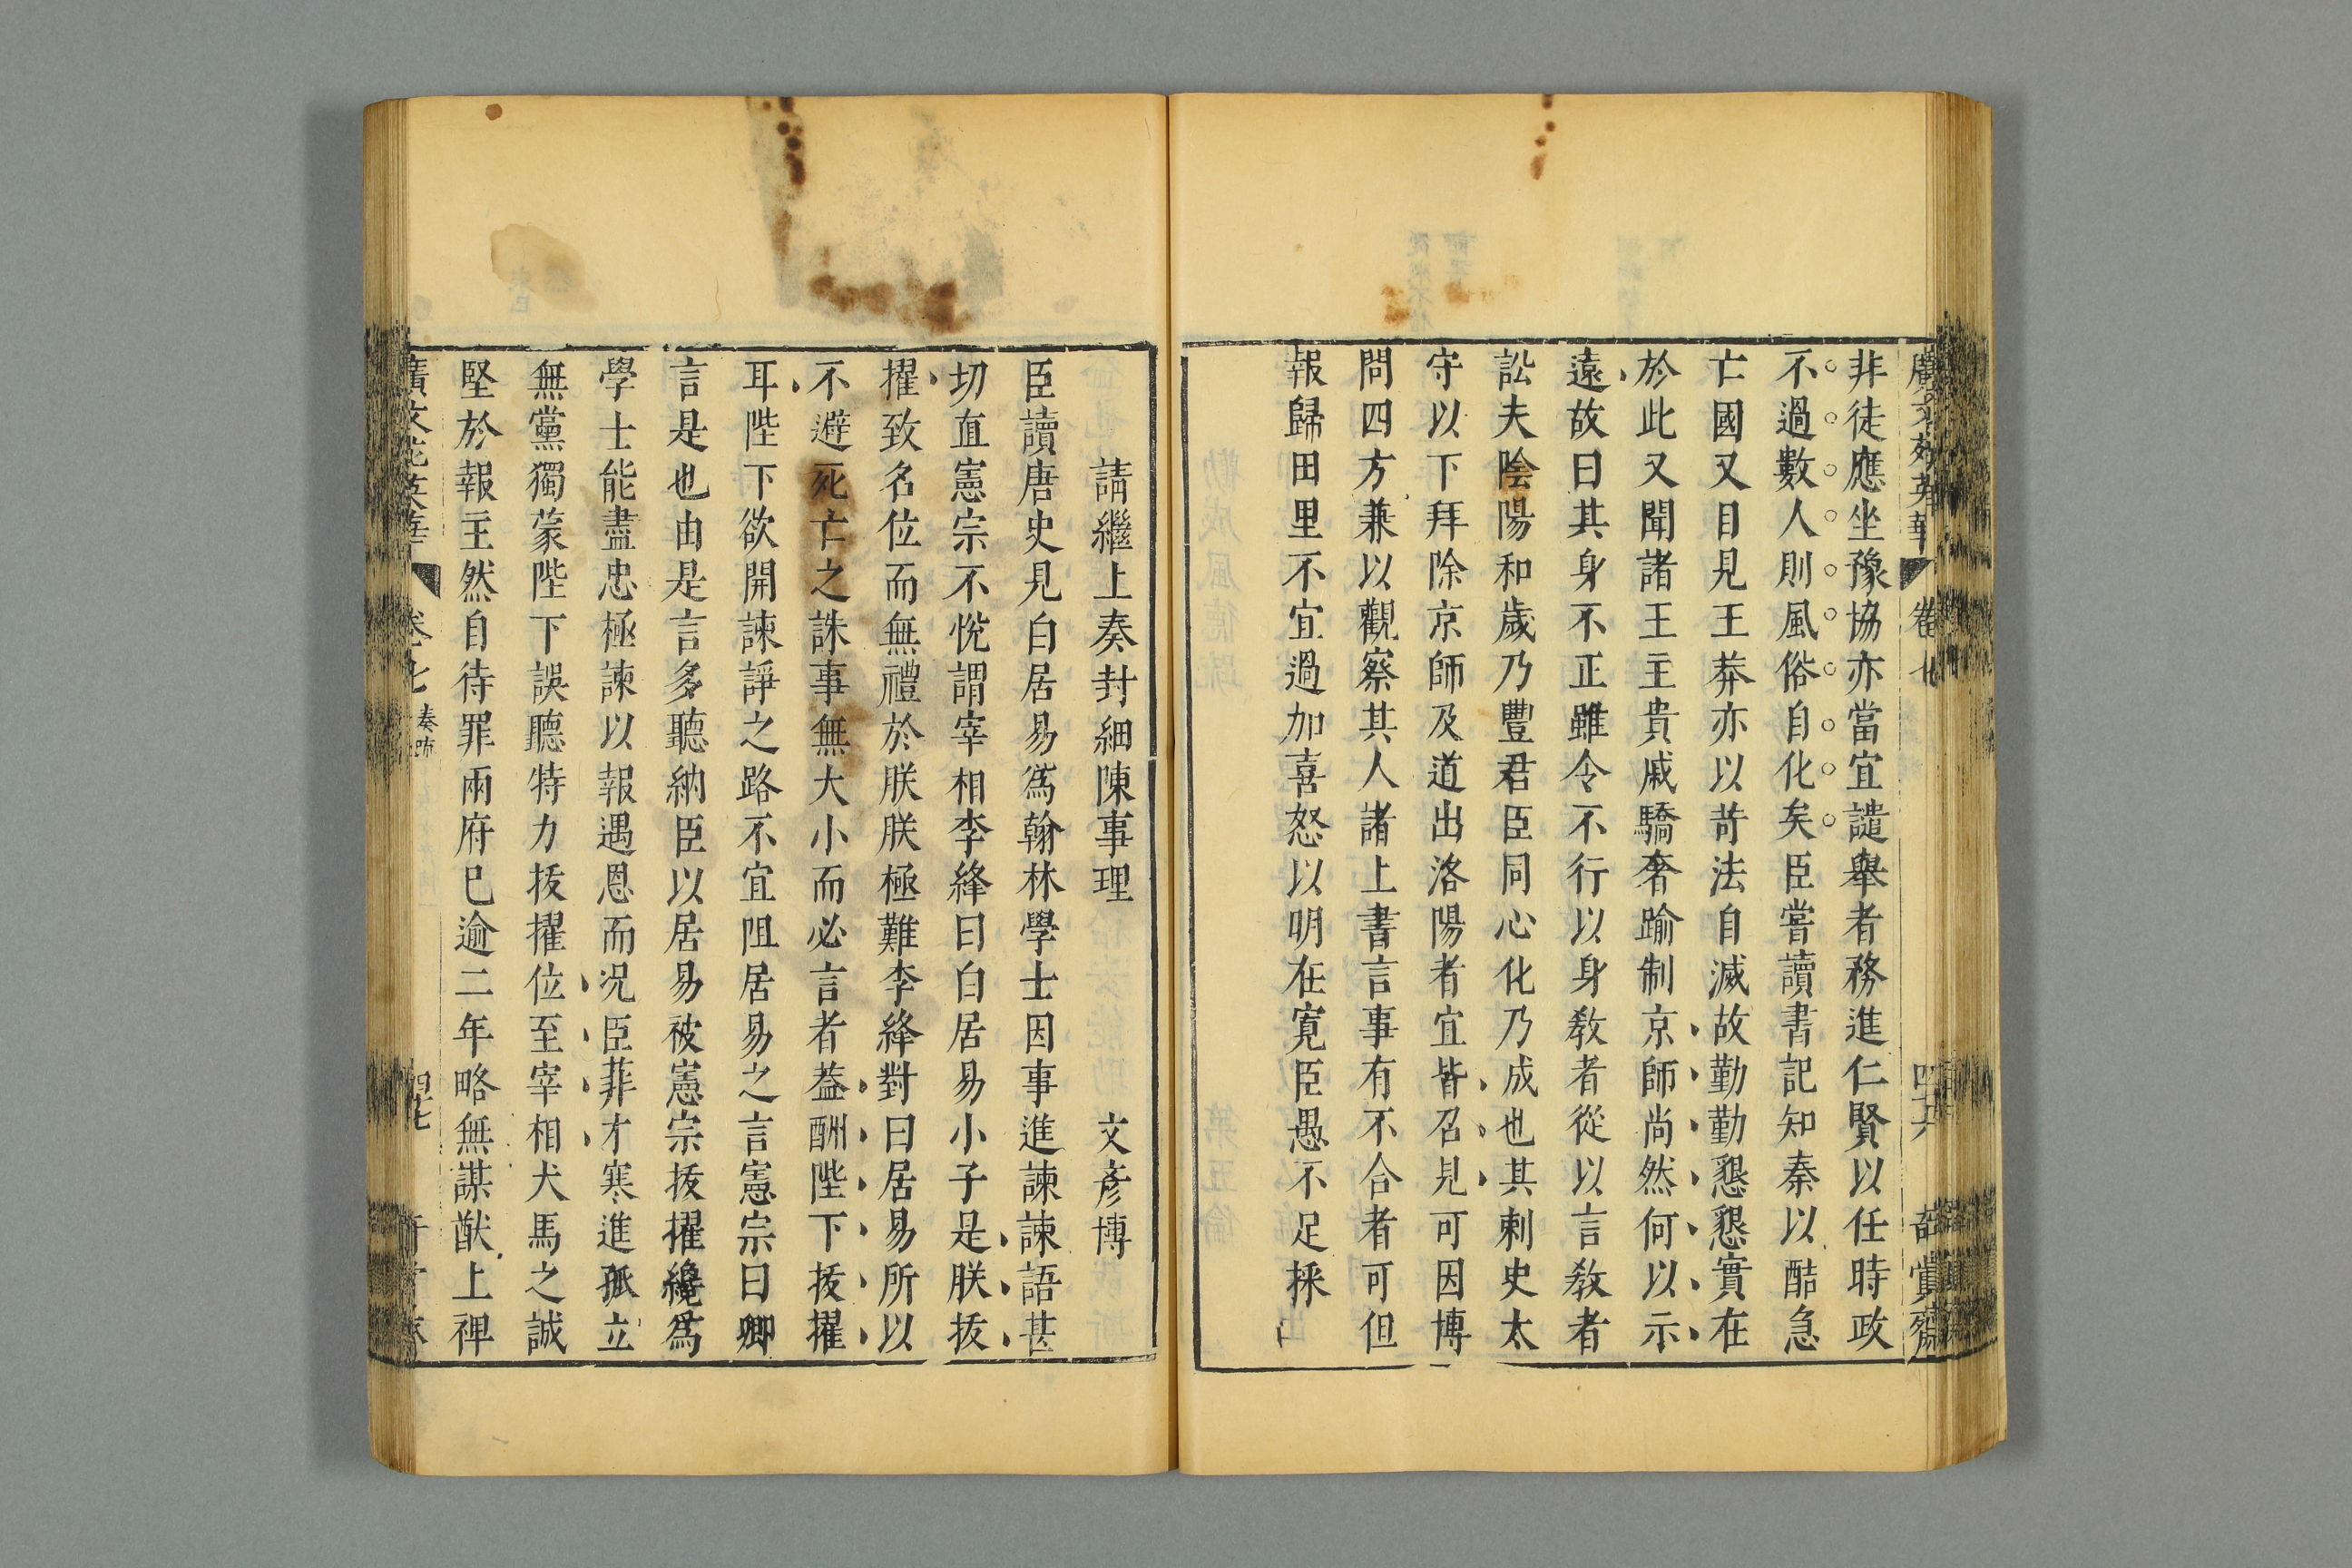 非徒應坐豫協亦當宜譴舉者務進仁賢以任時政
不過數人則風俗自化矣臣嘗讀書記知秦以酷急
亡國又目見王莽亦以苛法自滅故勤勤懇懇實在
於此又聞諸王主貴戚驕奢踰制京師尚然何以示
遠故曰其身不正雖令不行以身敎者從以言敎者
訟夫陰陽和歲乃豐君臣同心化乃成也其刺史太
守以下拜除京師及道出洛陽者宜皆召見可因博
問四方兼以觀察其人諸上書言事有不合者可但
報歸田里不宜過加喜怒以明在寬臣愚不足採
請繼上奏封細陳事理　文彥博
臣讀唐史見白居易爲翰林學士因事進諫諫語甚
切直憲宗不悅謂宰相李絳曰白居易小子是朕拔
擢致名位而無禮於朕朕極難李絳對曰居易所以
不避死亡之誅事無大小而必言者葢酬陛下拔擢
耳陛下欲開諫諍之路不宜阻居易之言憲宗曰卿
言是也由是言多聽納臣以居易被憲宗拔擢纔爲
學士能盡忠極諫以報遇恩而况臣菲才寒進孤立
無黨獨蒙陛下誤聽特力拔擢位至宰相犬馬之誠
堅於報主然自待罪兩府已逾二年略無謀猷上裨
廣文苑英華　卷七　奏疏　四七